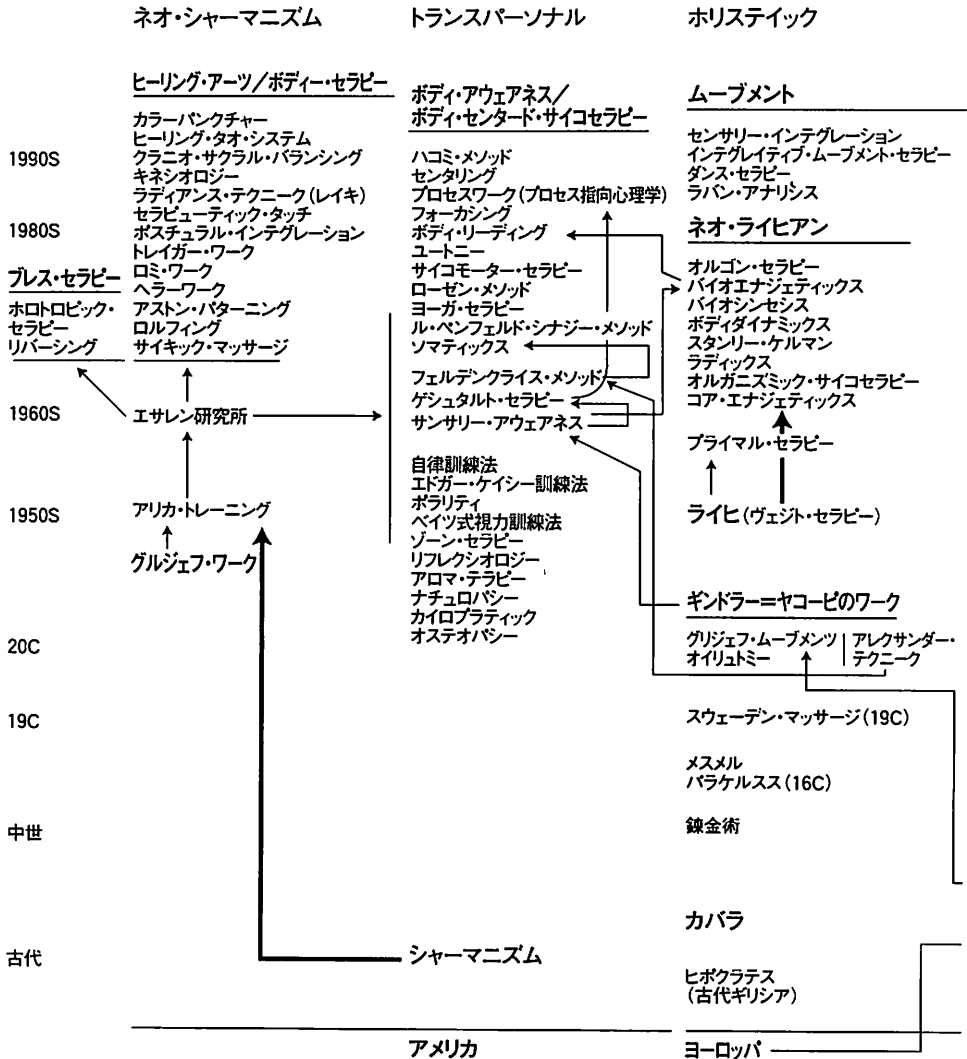 ネオ・シャーマニズム
トランスパーソナル
ホリステイック
ヒーリング・アーツ/ボディー・セラピー
カラーパンクチャー
ヒーリング・タオ・システム
1990S
クラニオ・サクラル・バランシング
キネシオロジー
ラディアンス・テクニーク(レイキ)
セラピューティック・タッチ
1980S
ポスチュラル・インテグレーション
トレイガー・ワーク
ロミ・ワーク
ヘラーワーク
アストン・パターニング
ロルフィング
サイキック・マッサージ
ブレス・セラピー
ホロトロピック・
セラピー
リバーシング
1960S
エサレン研究所
1950S
アリカ・トレーニング
グルジェフ・ワーク
ボディ・アウェアネス/
ボディ・センタード・サイコセラピー
ハコミ・メソッド
センタリング
プロセスワーク(プロセス指向心理学)
フォーカシング
ボディ・リーディング
ユートニー
サイコモーター・セラピー
ローゼン・メソッド
ヨーガ・セラピー
ル・ペンフェルド・シナジー・メソッド
ソマティックス
フェルデンクライス・メソッド
ゲシュタルト・セラピー
サンサリー・アウェアネス
自律訓練法
エドガー・ケイシー訓練法
ポラリティ
ベイツ式視力訓練法
ゾーン・セラピー
リフレクシオロジー
アロマ・テラピー
ナチュロパシー
カイロプラティック
オステオパシー
ムーブメント
センサリー・インテグレーション
インテグレイティブ・ムーブメント・セラピー
ダンス・セラピー
ラバン・アナリシス
ネオ・ライヒアン
オルゴン・セラピー
バイオエナジェティックス
バイオシンセシス
ボディダイナミックス
スタンリー・ケルマン
ラディックス
オルガニズミック・サイコセラピー
コア・エナジェティックス
プライマル・セラピー
ライヒ(ヴェジト・セラピー)
ギンドラー=ヤコービのワーク
20C
グリジェフ・ムーブメンツ
オイリュトミー
アレクサンダー・
テクニーク
19C
スウェーデン・マッサージ(19C)
メスメル
パラケルスス(16C)
中世
錬金術
カバラ
古代
シャーマニズム
ヒポクラテス
(古代ギリシア)
アメリカ
ヨーロッパ